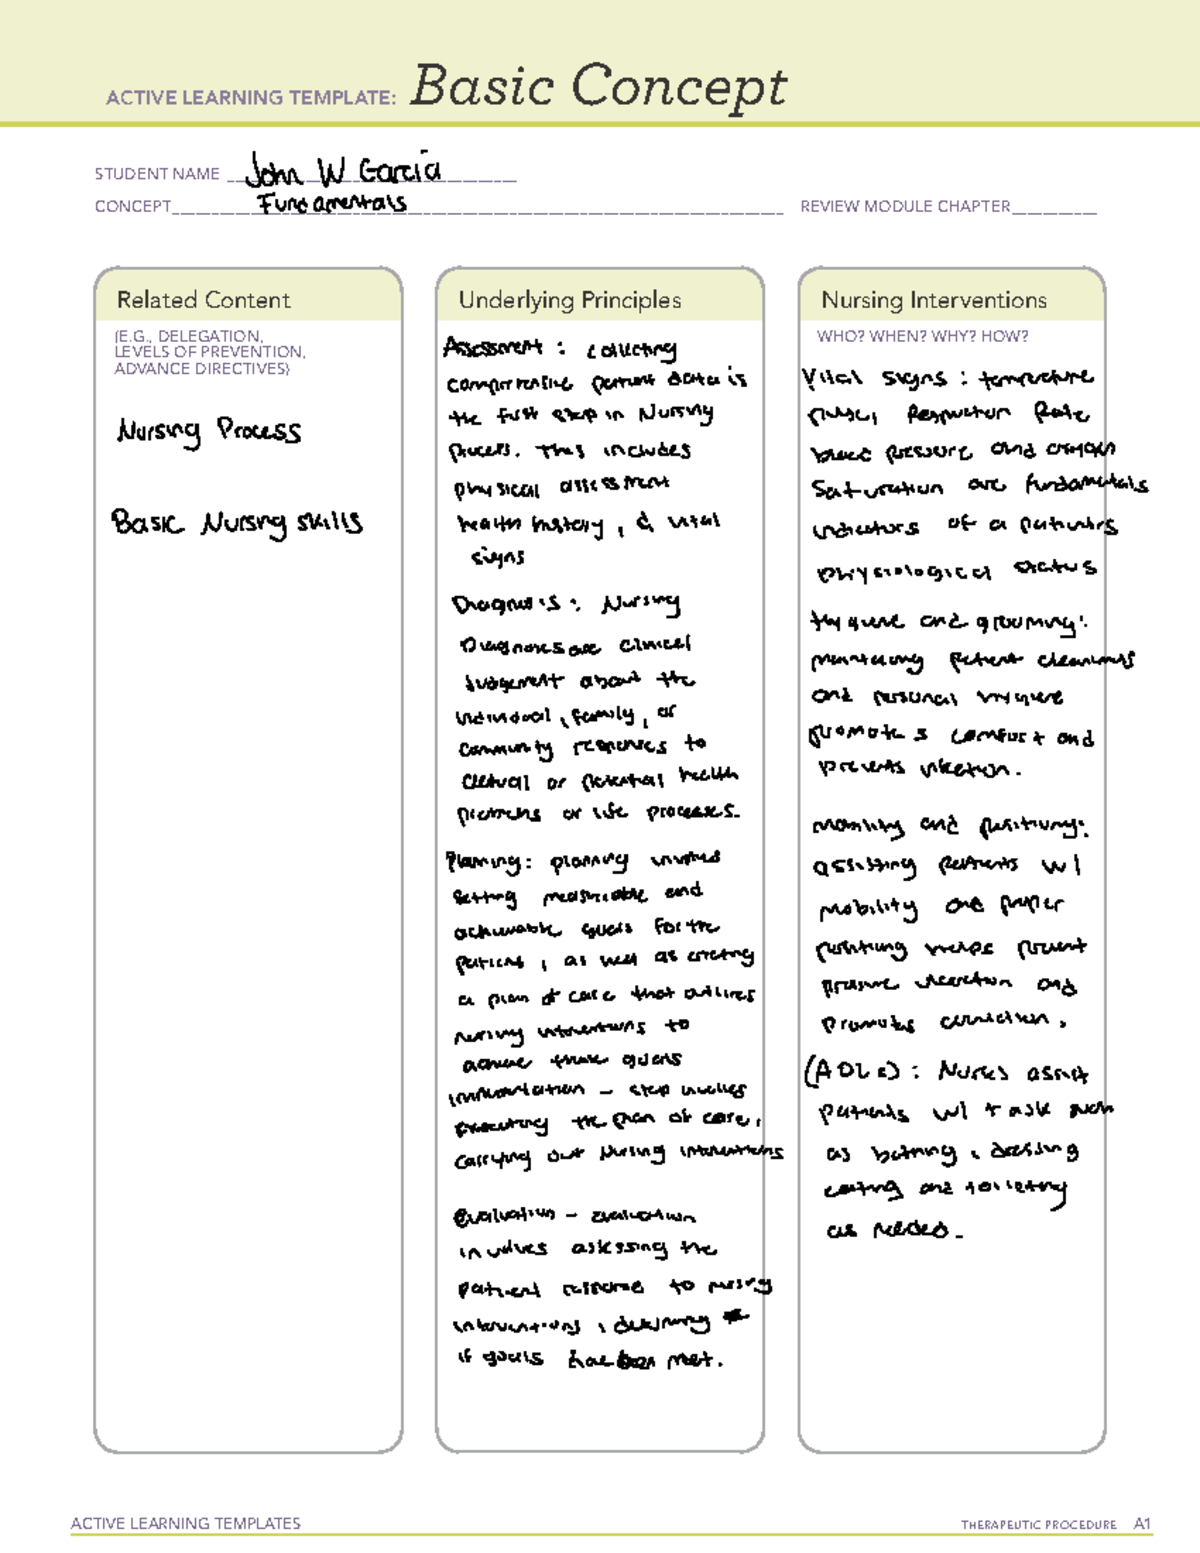 ACTIVE LEARNING TEMPLATE: Basic Concept
STUDENT NAME John W Garcia
CONCEPT Fundamentals REVIEW MODULE CHAPTER
Related Content
(E.G., DELEGATION,
LEVELS OF PREVENTION,
ADVANCE DIRECTIVES)
Nursing Process
Basic Nursing skills
Underlying Principles
Assessment : collecting
comprehensive patient data is
the first step in Nursing
process. This includes
physical assessment
health history, & vital
signs
Diagnosis : Nursing
Diagnoses are clinical
judgement about the
individual, family, or
community responses to
actual or potential health
problems or life processes.
Planning: planning involves
setting measurable and
achievable goals for the
patient, as well as creating
a plan of care that outlines
nursing interventions to
achieve these goals
implementation - step involves
executing the plan of care,
carrying out Nursing interventions
evaluation - evaluation
involves assessing the
patient response to nursing
interventions,
if goals been met.
Nursing Interventions
WHO? WHEN? WHY? HOW?
Vital signs : temperature
pulse, Respiration Rate
blood pressure and oxygen
saturation are fundamentals
indicators of a patients
physiological status
Hygiene and grooming:
maintaining patient cleanliness
and personal hygiene
promotes comfort and
prevents infection.
mobility and positioning:
assisting patients w/
mobility and proper
positioning helps prevent
pressure and
promotes circulation.
(ADLs) : Nurses assist
patients w/ task such
as bathing, dressing
eating and toileting
as needed.
ACTIVE LEARNING TEMPLATES
THERAPEUTIC PROCEDURE A1